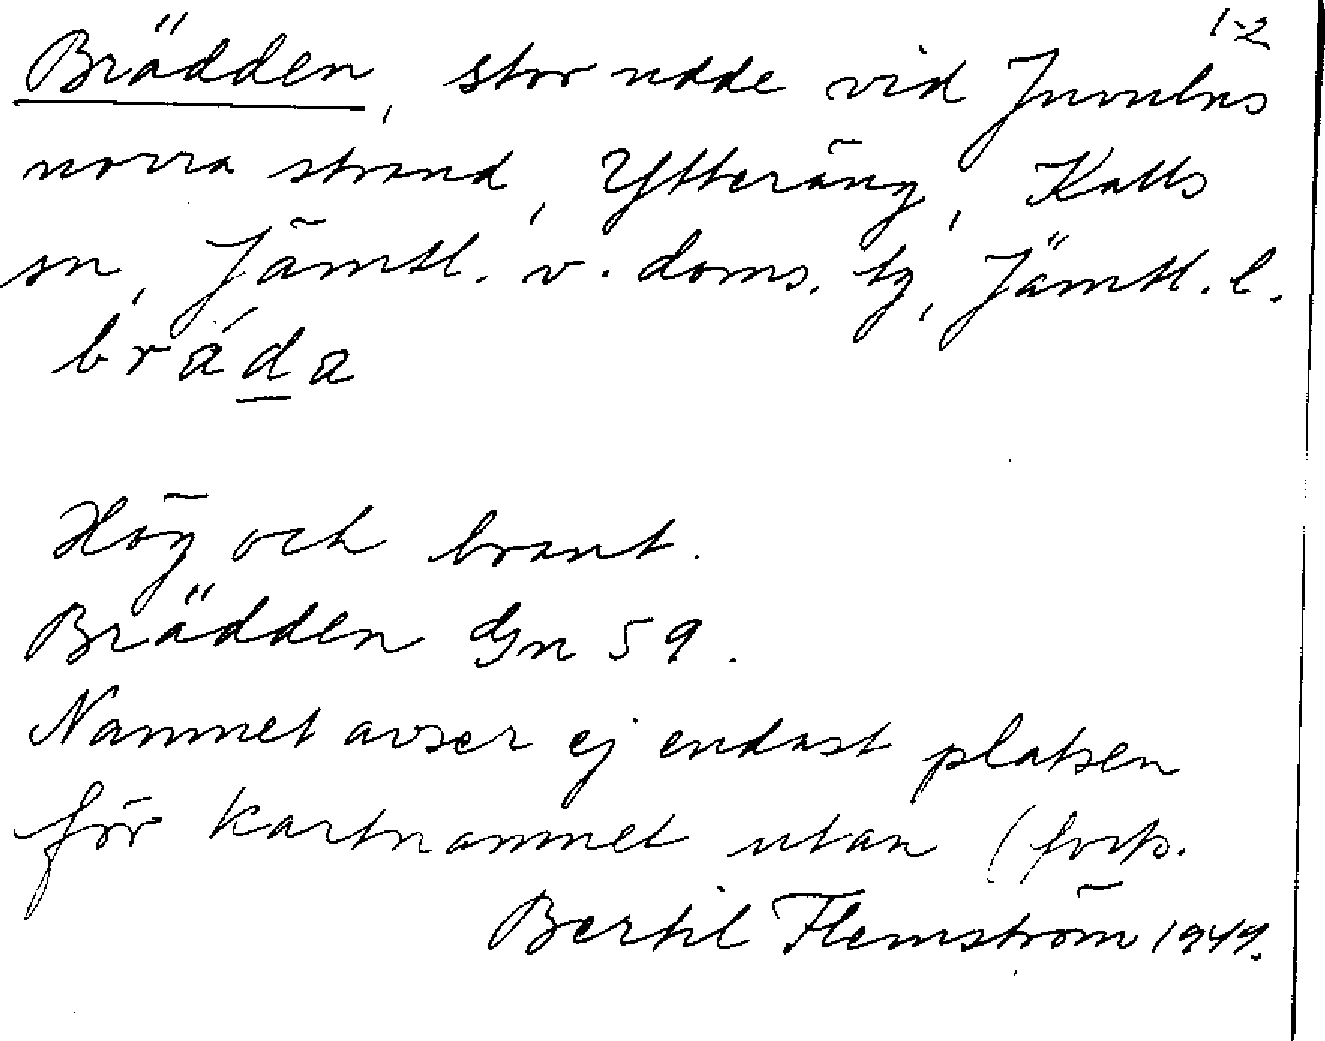 1-2
Brädden, stor udde vid Juvulns
norra strand, Ytteräng, Kalls
sn, Jämtl. v. doms. tg, Jämtl. l.
bráda
Hög och brant.
Brädden Gn 59.
Namnet avser ej endast platsen
för kartnamnet utan (forts.
Bertil Flemström 1949.